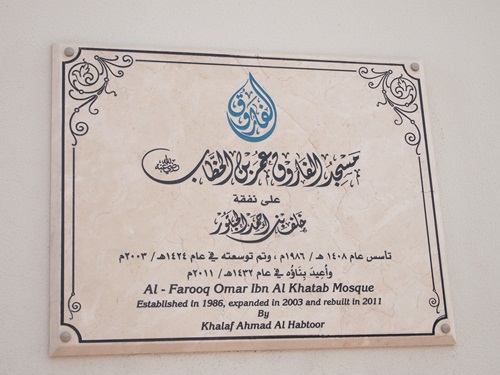 الفاروق
مسجد الفاروق عمر بن الخطاب رضي الله عنه
على نفقة
خلف بن احمد الحبتور
تأسس عام ١٤٠٨ هـ / ١٩٨٦م ، وتم توسعته في عام ١٤٢٤هـ / ٢٠٠٣م
وأعيد بناؤه في عام ١٤٣٢هـ / ٢٠١١م
Al - Farooq Omar Ibn Al Khatab Mosque
Established in 1986, expanded in 2003 and rebuilt in 2011
By
Khalaf Ahmad Al Habtoor